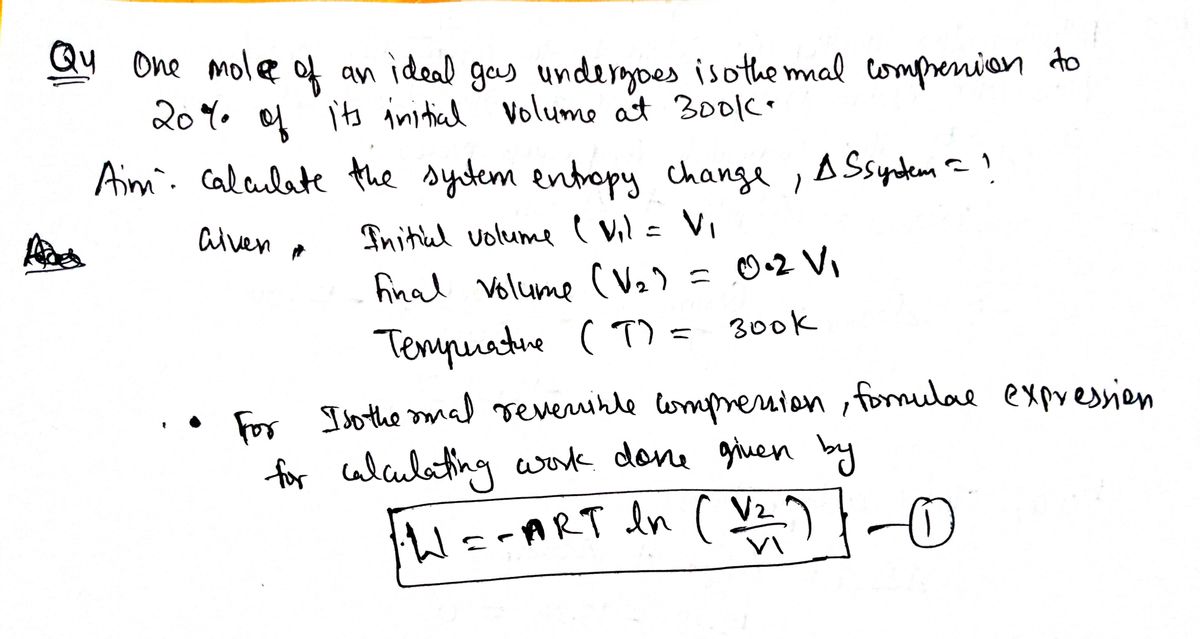 Q4 One mole of an ideal gas undergoes isothermal compression to
20% of its initial volume at 300K.
Aim:- Calculate the system entropy change, ΔSsystem = ?
Given, Initial volume (V1) = V1
final volume (V2) = 0.2 V1
Temperature (T) = 300K
• For Isothermal reversible compression, formulae expression
for calculating work done given by
W = -nRT ln (V2/V1) - ①